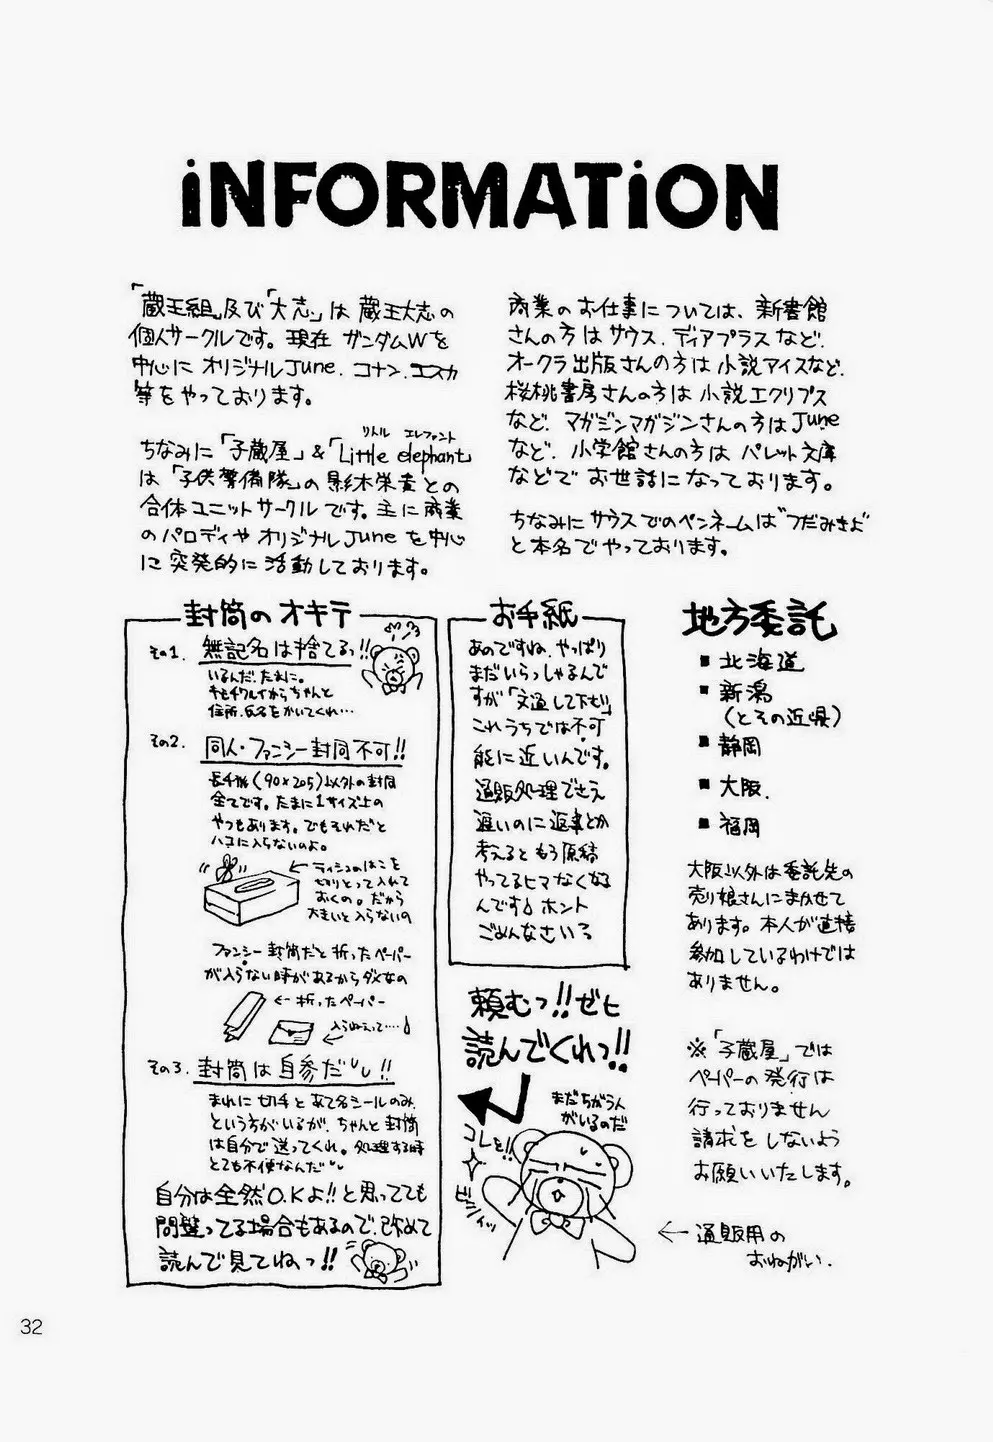 iNFORMATiON
「蔵王組」及び「大志」は 蔵王大志の
個人サークルです。現在 ガンダムWを
中心に オリジナルJune. コナン. エスカ
等をやっております。
リトル エレファント
ちなみに「子蔵屋」&「Little elephant」
は「子供警備隊」の影木栄貴との
合体ユニットサークルです。主に商業
のパロディや オリジナルJune を中心
に突発的に活動しております。
商業のお仕事については、新書館
さんの方はサウス. ディアプラスなど.
オークラ出版さんの方は小説アイスなど.
桜桃書房さんの方は小説エクリプス
など. マガジンマガジンさんの方はJune
など. 小学館さんの方はパレット文庫
などで お世話になっております。
ちなみにサウスでのペンネームは"つだみきよ"
と本名でやっております。
封筒のオキテ
その1. 無記名は捨てるっ!!
いるんだ.たまに。
キモチワルイからちゃんと
住所.氏名をかいてくれ…
その2. 同人・ファンシー封筒不可!!
長4版(90×205)以外の封筒
全てです。たまに1サイズ上の
やつもあります。でもそれだと
ハコに入らないのよ。
←ティシュのはこを
切りとって入れて
おくの。だから
大きいと入らないの
ファンシー封筒だと折ったペーパー
が入らない時があるからダメなの
←折ったペーパー
入らねえって…
その3. 封筒は自参だ!!
まれに切手とあて名シールのみ.
という方がいるが、ちゃんと封筒
は自分で送ってくれ。処理する時
とても不便なんだ
自分は全然O.Kよ!!と思ってても
間違ってる場合もあるので、改めて
読んで見てねっ!!
お手紙
あのですね、やっぱり
まだいらっしゃるんで
すが「文通して下さい」
これうちでは不可
能に近いんです。
通販処理でさえ
遅いのに返事とか
考えるともう原稿
やってるヒマなくなる
んです ホント
ごめんなさいっ
頼むっ!!ゼヒ
読んでくれっ!!
まだちがう人
がいるのだ
コレを!!
地方委託
■北海道
■新潟
(とその近県)
■静岡
■大阪.
■福岡
大阪以外は委託先の
売り娘さんにまかせて
あります。本人が直接
参加しているわけでは
ありません。
※「子蔵屋」では
ペーパーの発行は
行っておりません
請求をしないよう
お願いいたします。
←通販用の
おねがい.
32